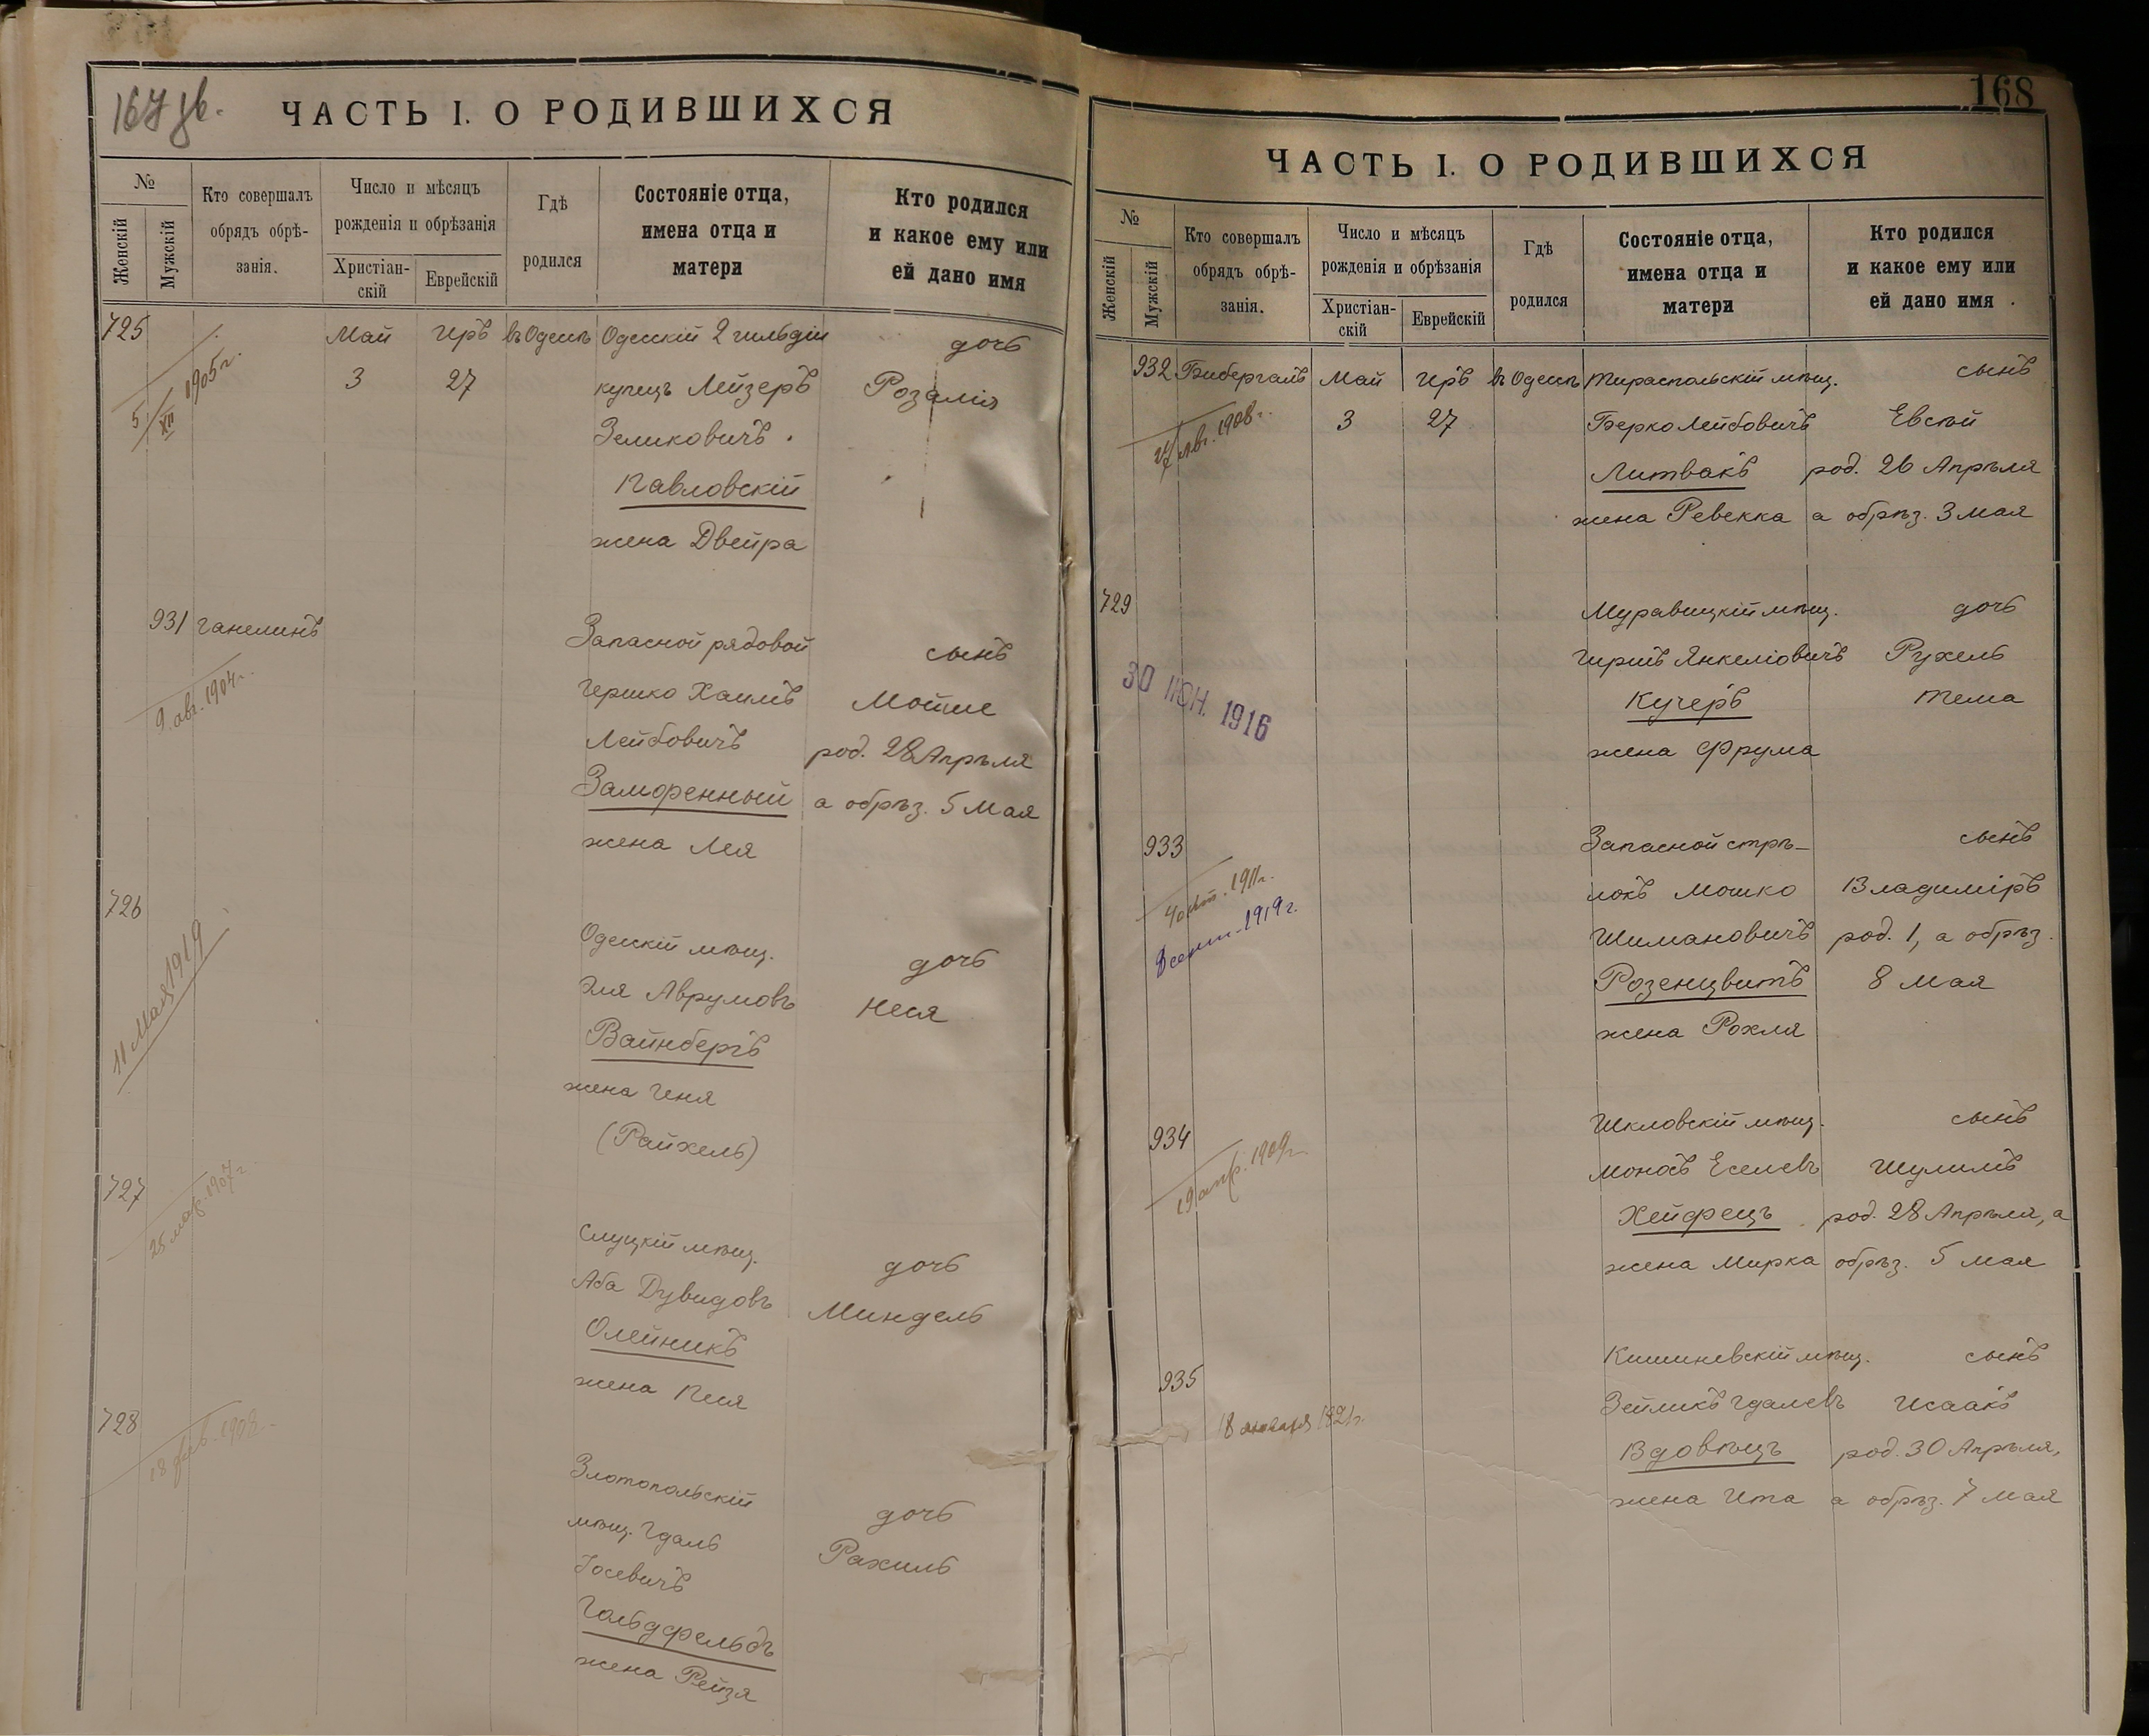 167 об.
ЧАСТЬ I. О РОДИВШИХСЯ
№
Женскій
Мужскій
Кто совершалъ
обрядъ обрѣ-
занія.
Число и мѣсяцъ
рожденія и обрѣзанія
Христіан-
скій
Еврейскій
Гдѣ
родился
Состояніе отца,
имена отца и
матери
Кто родился
и какое ему или
ей дано имя
725 Май Иръ въ Одессѣ Одесскій 2 гильдіи дочь
3 27 купецъ Лейзеръ Розалія
5/XII 1905 г.
Зеликовичъ
Павловскій
жена Двейра
931 Ганелинъ Запасной рядовой сынъ
9. авг. 1904 г.
Гершко Хаимъ Мойше
Лейбовичъ род. 28 Апрѣля
Заморенный а обрѣз. 5 Мая
жена Лея
726 Одесскій мѣщ. дочь
11 Мая 1919
Эля Аврумовъ Неся
Вайнбергъ
жена Геня
(Райхель)
727 Слуцкій мѣщ. дочь
25 мар. 1907 г.
Аба Дувидовъ Миндель
Олейникъ
жена Песя
728 Златопольскій дочь
мѣщ. Гдаль Рахиль
Іосевичъ
Гольдфельдъ
жена Рейзя
168
ЧАСТЬ I. О РОДИВШИХСЯ
№
Женскій
Мужскій
Кто совершалъ
обрядъ обрѣ-
занія.
Число и мѣсяцъ
рожденія и обрѣзанія
Христіан-
скій
Еврейскій
Гдѣ
родился
Состояніе отца,
имена отца и
матери
Кто родился
и какое ему или
ей дано имя
932 Бибергалъ Май Иръ въ Одессѣ Тираспольскій мѣщ. сынъ
3 27 Берко Лейбовичъ Евсѣй
авг. 1908 г.
Литвакъ род. 26 Апрѣля
жена Ревекка а обрѣз. 3 мая
729 Муравицкій мѣщ. дочь
Гиршъ Янкеліовичъ Рухель
30 ІЮН. 1916
Кучеръ Тема
жена Фрума
933 Запасной стрѣ- сынъ
1911 г.
локъ Мошко Владиміръ
сент. 1919 г.
Шимановичъ род. 1, а обрѣз.
Розенцвитъ 8 мая
жена Рохля
934 Шкловскій мѣщ. сынъ
19 апр. 1909 г.
Моносъ Еселевъ Шулимъ
Хейфецъ род. 28 Апрѣля, а
жена Мирка обрѣз. 5 мая
935 Кишиневскій мѣщ. сынъ
Зейликъ Гдалевъ Исаакъ
18 января 1921 г.
Вдовѣцъ род. 30 Апрѣля,
жена Ита а обрѣз. 7 мая